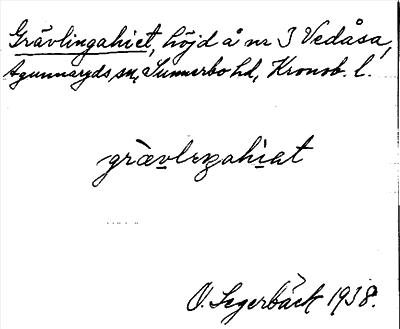 Grävlingahiet, höjd å nr 3 Vedåsa,
Agunnaryds sn, Sunnerbo hd, Kronob. l.
grävleŋahiat
O. Segerbäck 1938.